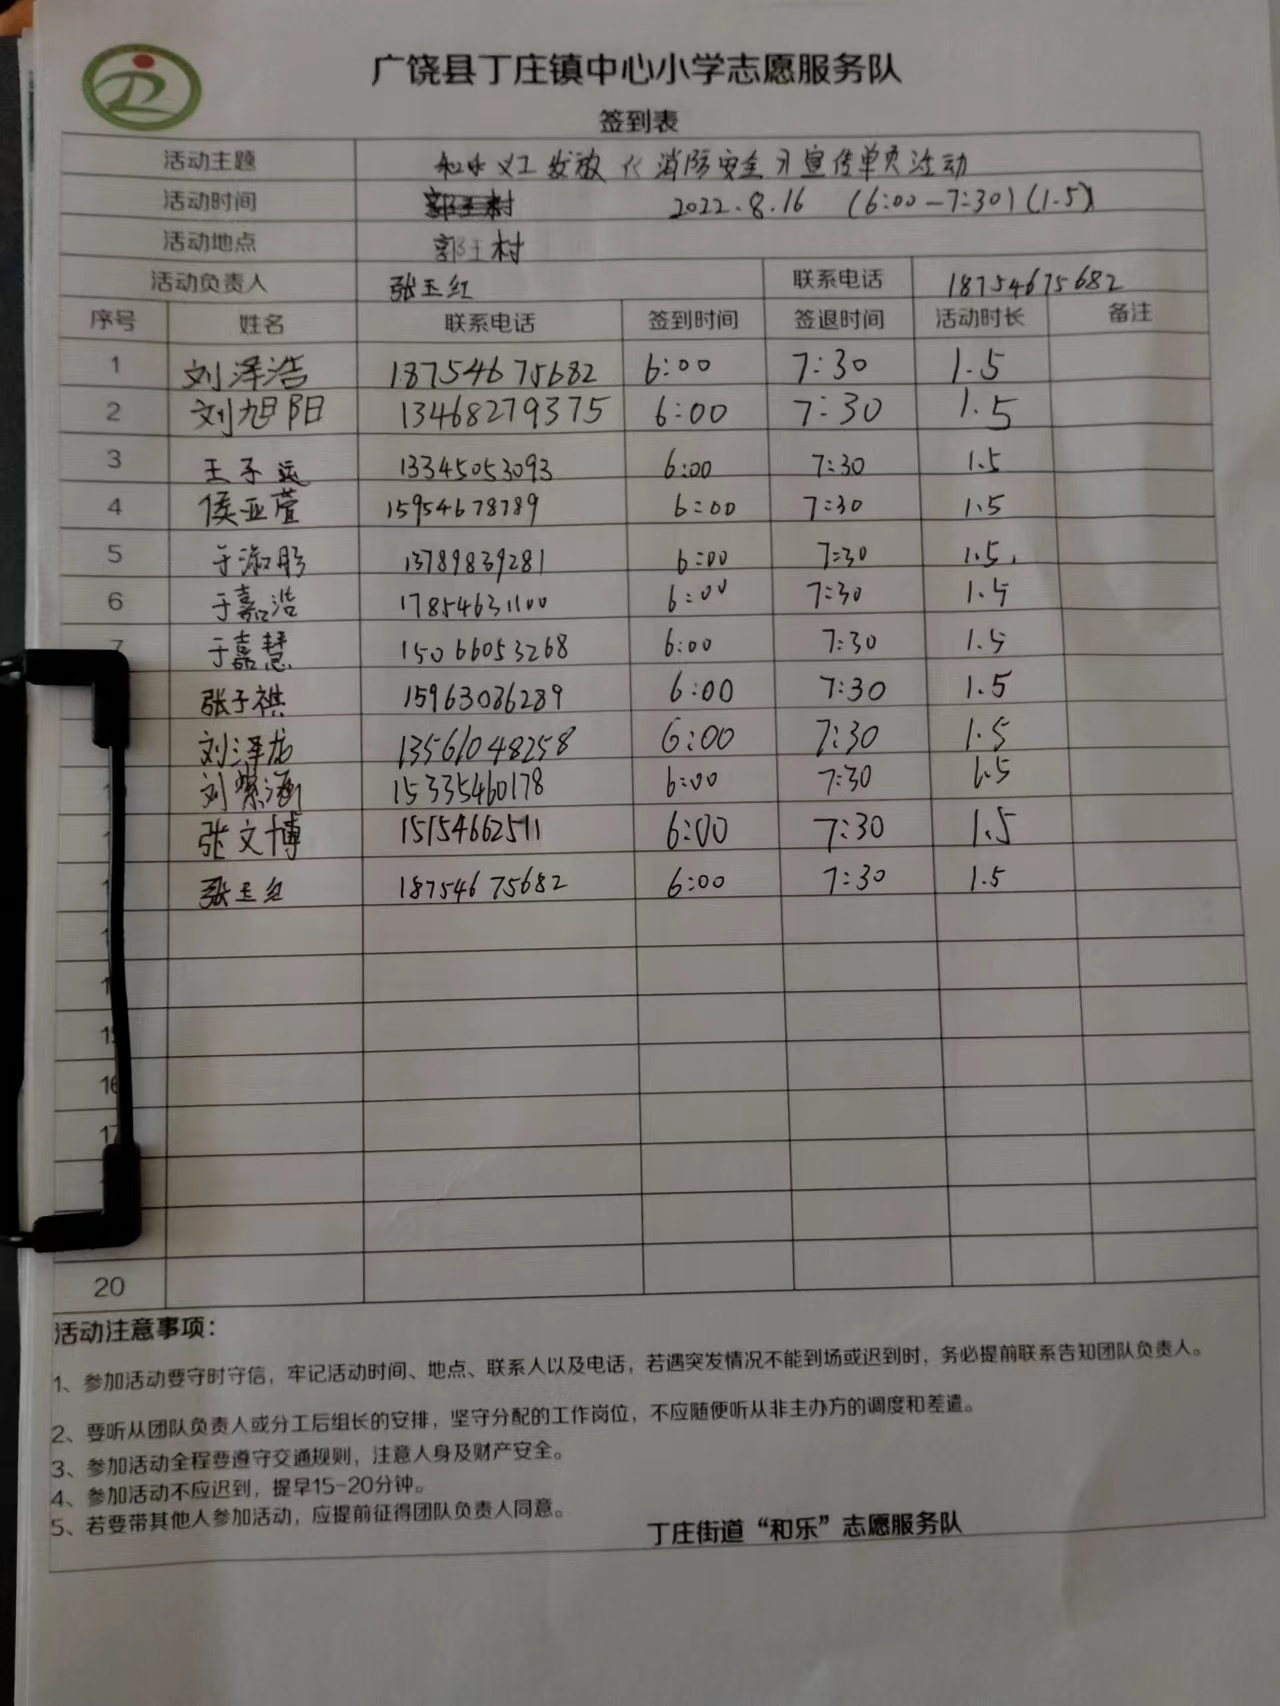 广饶县丁庄镇中心小学志愿服务队
签到表
活动主题 和乐义工发放《消防安全》宣传单页活动
活动时间 2022.8.16 (6:00-7:30)(1.5)
活动地点 郭王村
活动负责人 张玉红 联系电话 18754675682
序号 姓名 联系电话 签到时间 签退时间 活动时长 备注
1 刘泽浩 18754675682 6:00 7:30 1.5
2 刘旭阳 13468279375 6:00 7:30 1.5
3 王子远 13345053093 6:00 7:30 1.5
4 侯亚萱 15954678789 6:00 7:30 1.5
5 于淑彤 13789839281 6:00 7:30 1.5
6 于嘉浩 17854631100 6:00 7:30 1.5
7 于嘉慧 15066053268 6:00 7:30 1.5
张子祺 15963036289 6:00 7:30 1.5
刘泽龙 13561048258 6:00 7:30 1.5
刘紫涵 15335460178 6:00 7:30 1.5
张文博 15154662511 6:00 7:30 1.5
张玉红 18754675682 6:00 7:30 1.5
15
16
17
20
活动注意事项：
1、参加活动要守时守信，牢记活动时间、地点、联系人以及电话，若遇突发情况不能到场或迟到时，务必提前联系告知团队负责人。
2、要听从团队负责人或分工后组长的安排，坚守分配的工作岗位，不应随便听从非主办方的调度和差遣。
3、参加活动全程要遵守交通规则，注意人身及财产安全。
4、参加活动不应迟到，提早15-20分钟。
5、若要带其他人参加活动，应提前征得团队负责人同意。
丁庄街道“和乐”志愿服务队